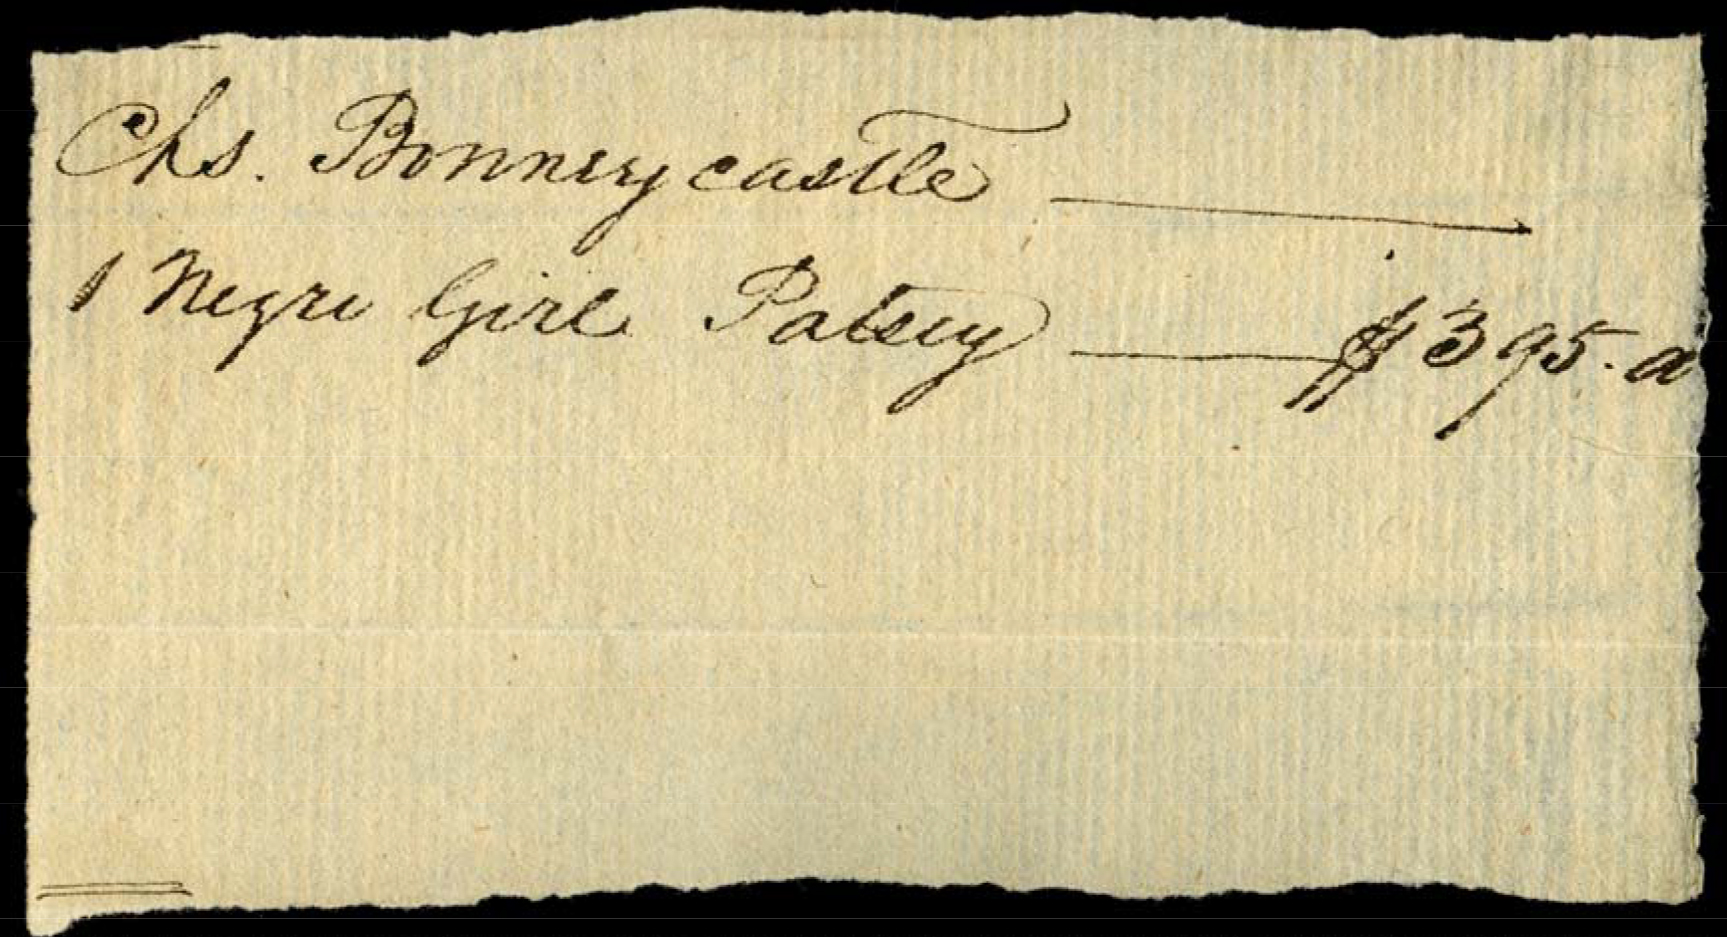 Chs. Bonneycastle
1 Negro Girl Patsey $395.